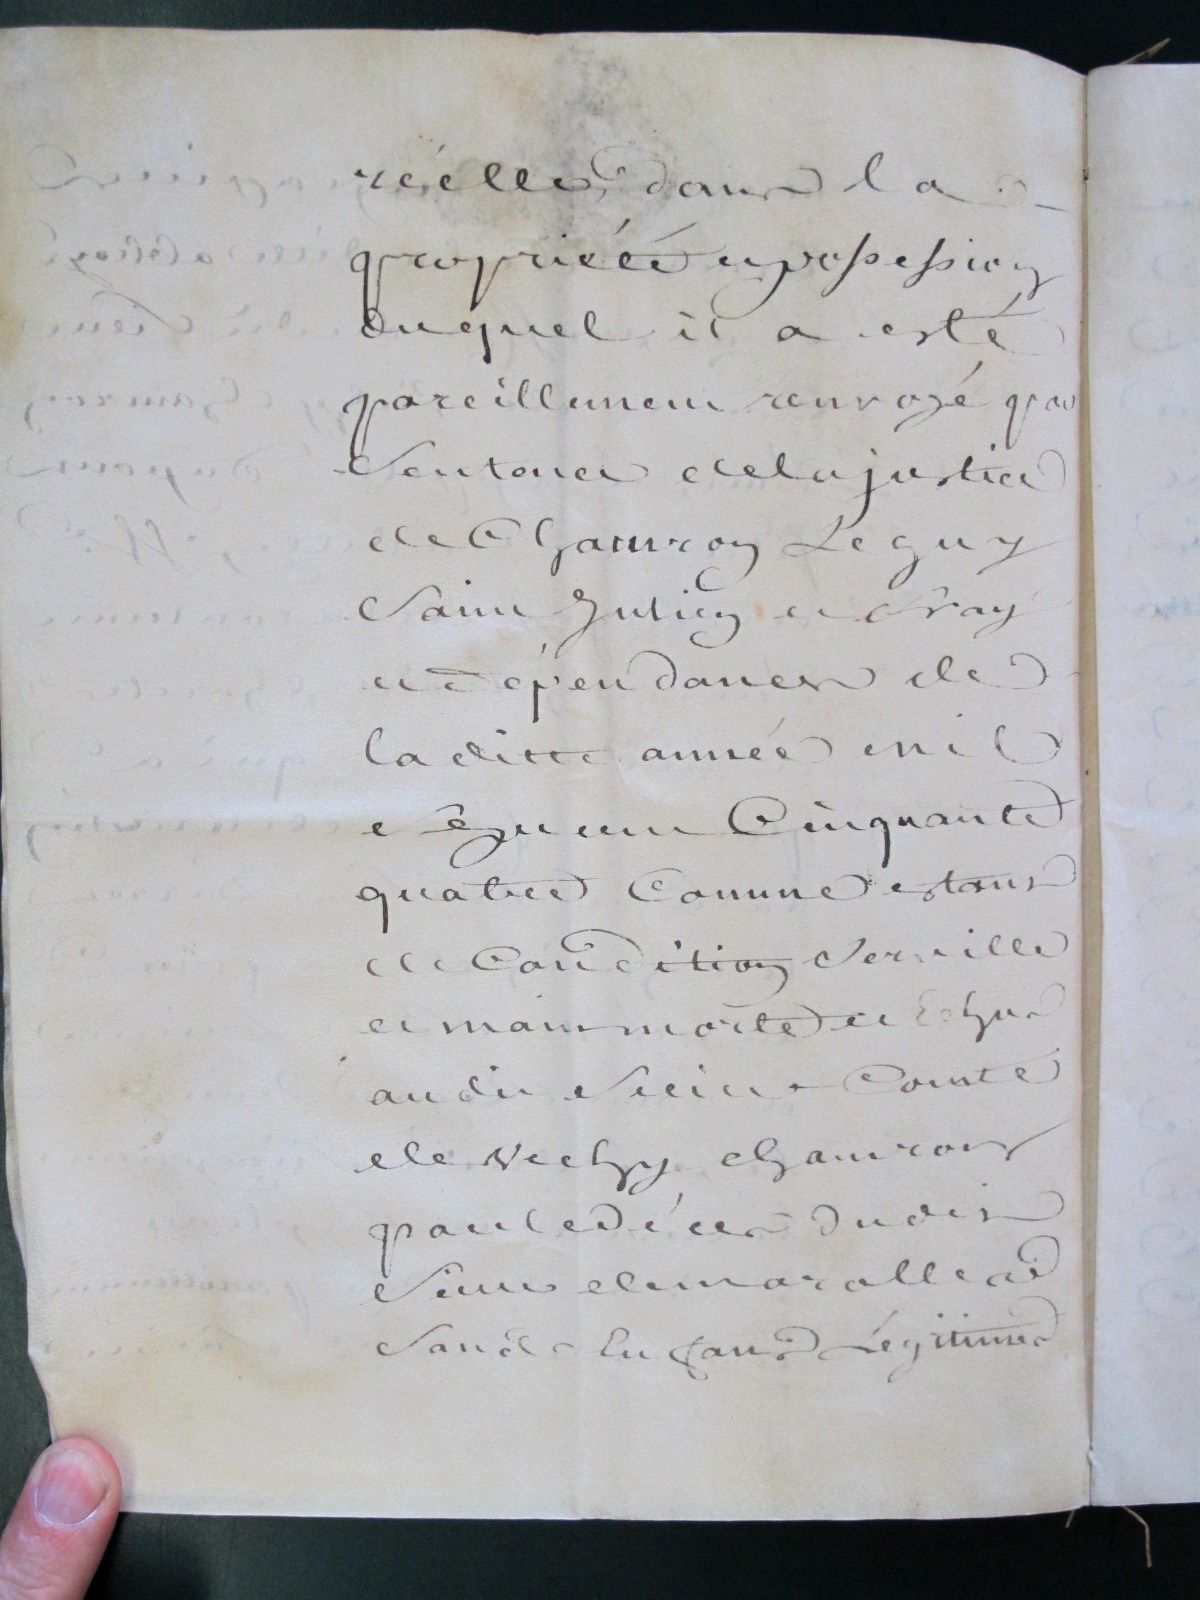 réelle, dans la
propriété et possession
duquel il a esté
pareillement renvoyé par
Sentence de la justice
de Chamron Le guy
Saint Julien de Cray
et dépendances de
la ditte année mil
sept cent Cinquante
quatre Comme estans
de Condition Serville
et main morte et Echus
audit Sieur Comte
de Vichy Chamron
par le décès dudit
Sieur
Sans Enfans Légitimes